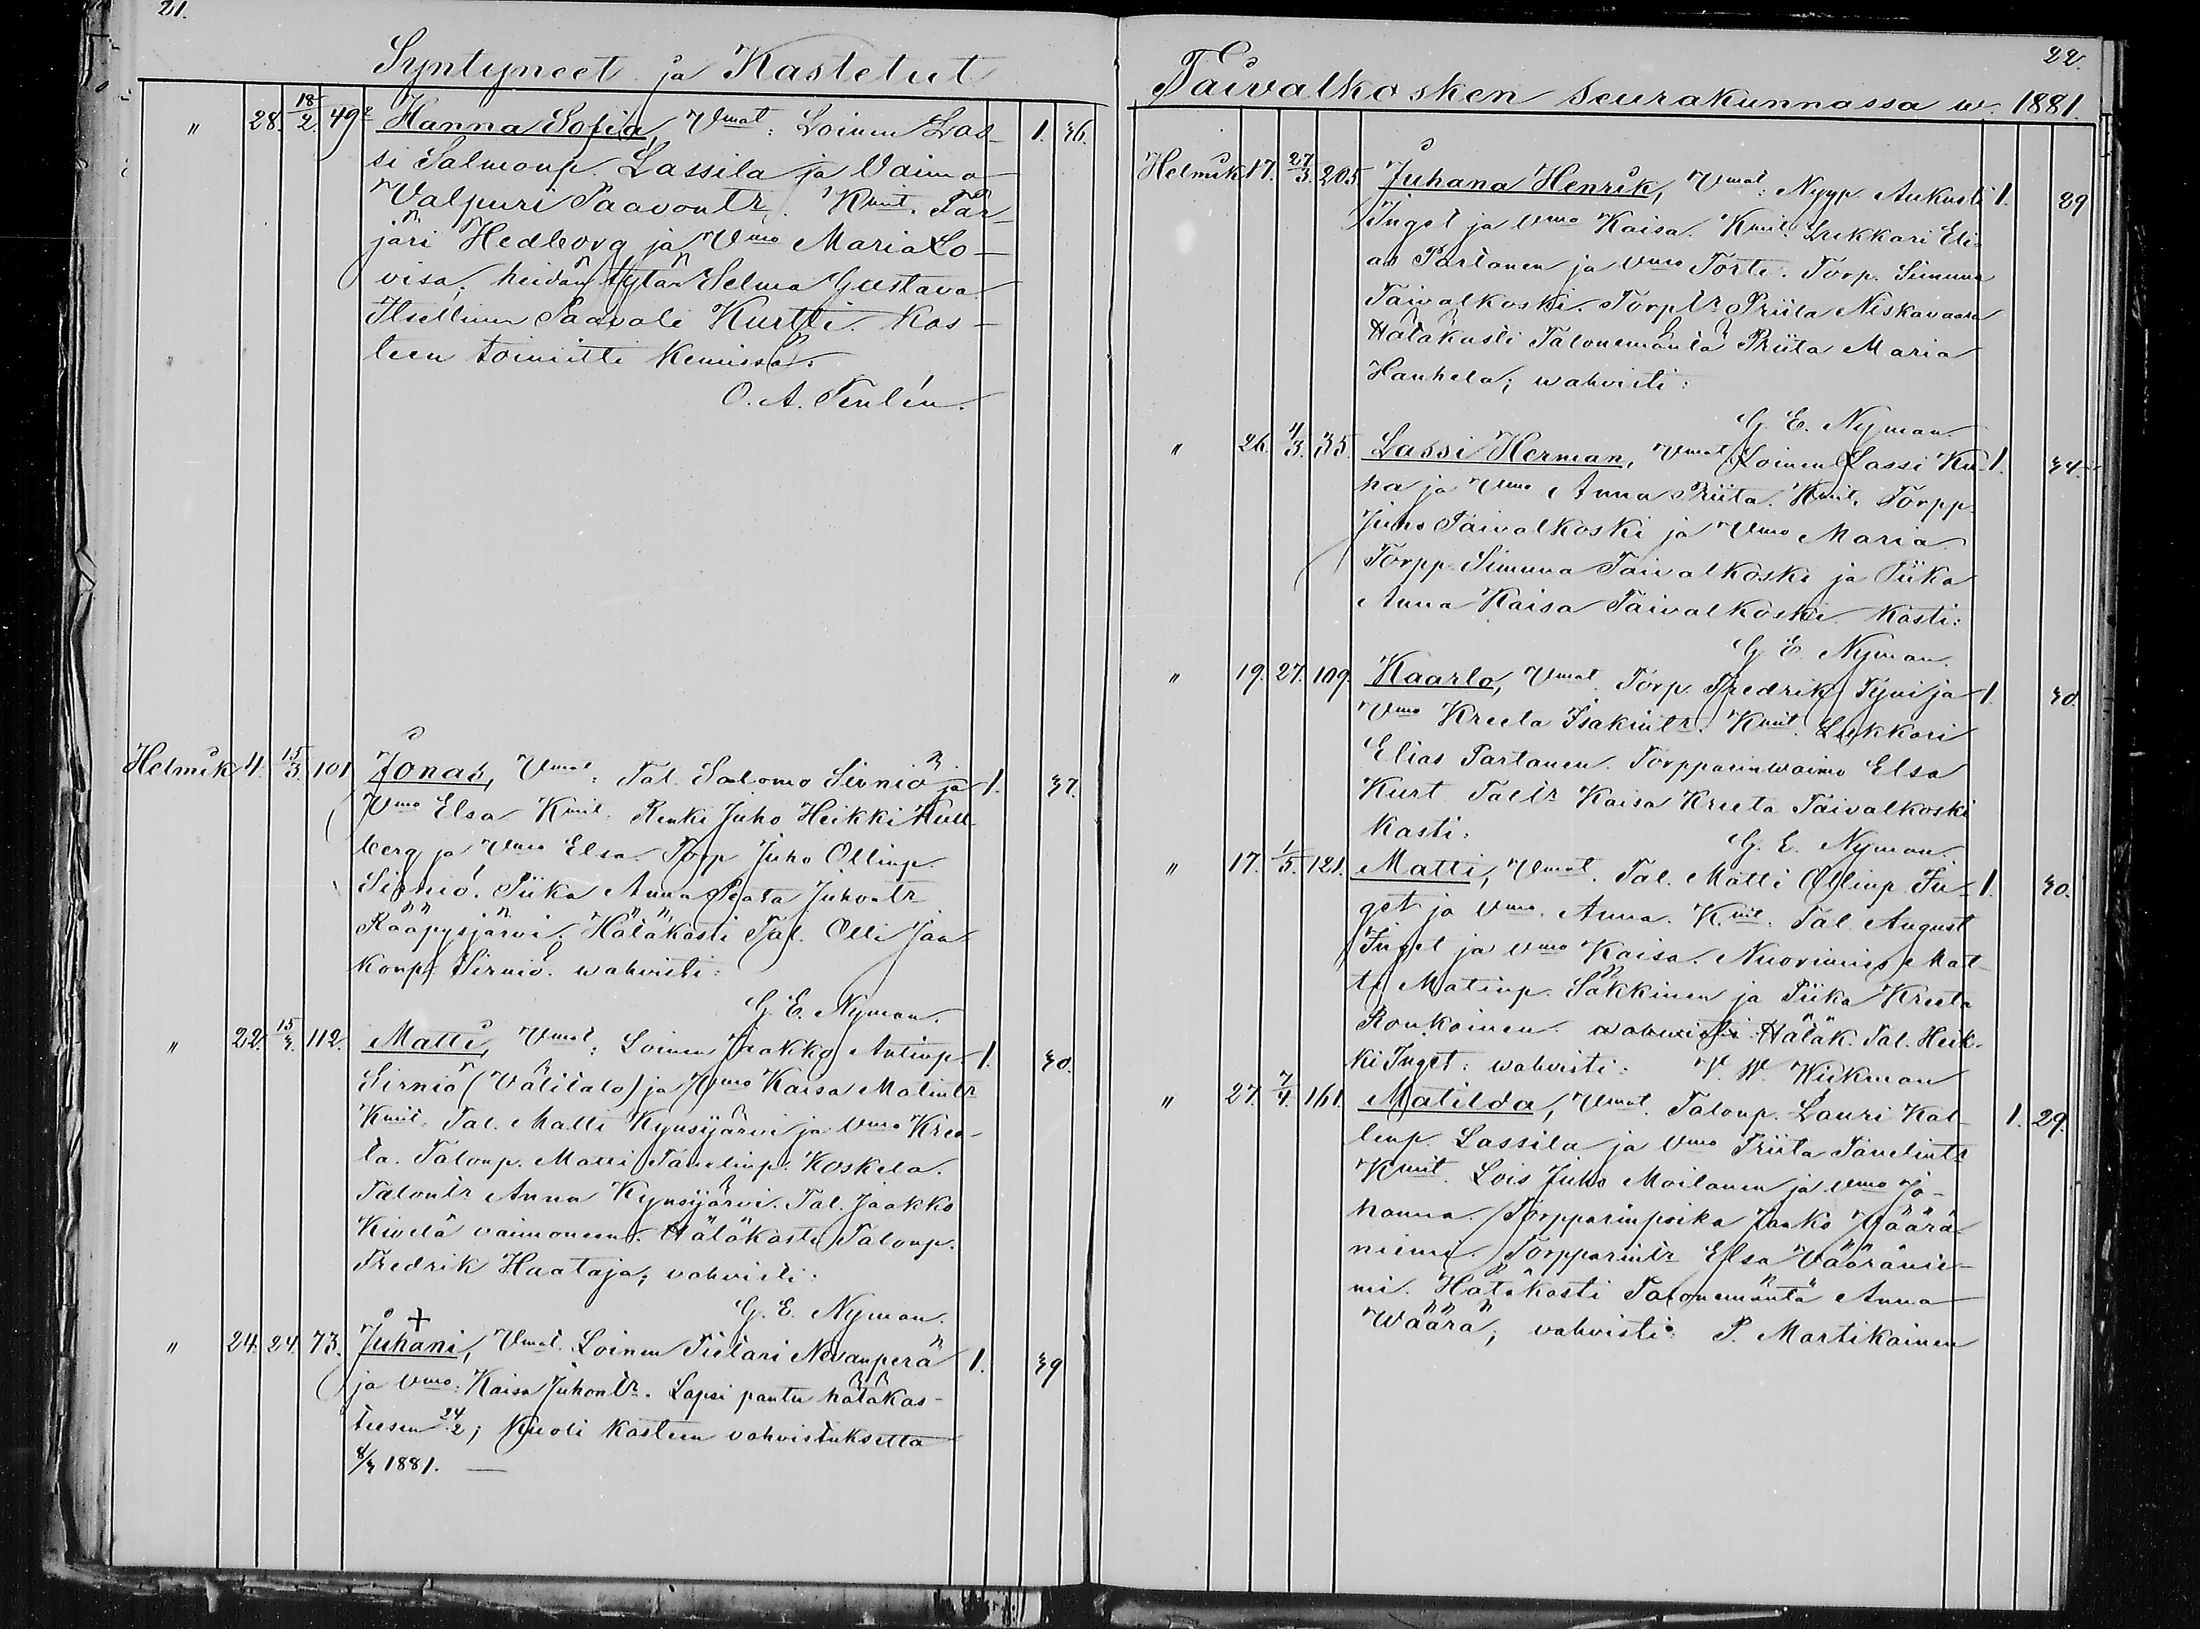 21.
Syntyneet ja Kastetut
" 28. 18/2. 49 Hanna Sofia, Vmat: Loinen Las- 1. 36.
si Salmonp. Lassila ja Vaimo
Valpuri Paavontr. Kmit. Vär-
järi Hedborg ja Vmo Maria Lo-
visa, heidän tytär Selma Gustava.
Itsellinen Paavali Kurtti. Kas-
teen toimitti Kemissä.
O. A. Tenlén.
Helmik 4. 15/3. 101 Jonas, Vmat: Tal. Salomo Sirniö ja 1. 37.
Vmo Elsa Kmit: Renki Juho Heikki Kull-
berg ja Vmo Elsa. Torp Juho Ollinp.
Sirniö. Piika Anna Juhontr
Rääpysjärvi. Hätäkasti Tal. Olli Jaa-
konp. Sirniö. wahvisti:
G. E. Nyman.
" 22. 15/3. 112. Matti, Vmat: Loinen Jaakko Antinp. 1. 30.
Sirniö (Välitalo) ja Vmo Kaisa Matintr
Kmit. Tal. Matti Kynsijärvi ja Vmo Kree-
ta. Talonp. Matti Tanelinp. Koskela.
Talontr Anna Kynsijärvi. Tal. Jaakko
Kivelä vaimoneen. Hätäkasti Talonp.
Fredrik Haataja; vahvisti:
G. E. Nyman.
" 24. 24. 73. + Juhani, Vmat. Loinen Pietari Nevanperä 1. 39
ja Vmo: Kaisa Juhontr. Lapsi pantu hätäkas-
teesen 24/2; Kuoli kasteen vahvistuksetta
8/3 1881. —
22.
Taivalkosken seurakunnassa w. 1881.
Helmik 17. 27/3. 205 Juhana Henrik, Vmat: Nygp. Aukusti 1. 29
Inget ja Vmo Kaisa. Kmit: Lukkari Eli-
as Partanen ja Vmo Torp. Simuna
Taivalkoski. Torptr Priita Niskavaara
Hätäkasti Talonemäntä Priita Maria
Hanhela; wahvisti:
G. E. Nyman.
" 26. 4/3. 35. Lassi Herman, Vmat. Loinen Lassi Ku- 1. 34.
ha ja Vmo Anna Priita. Kmit. Torpp.
Juho Taivalkoski ja Vmo Maria.
Torpp. Simuna Taivalkoski ja Piika
Anna Kaisa Taivalkoski. Kasti:
G. E. Nyman.
" 19. 27. 109. Kaarlo, Vmat. Torp. Fredrik Tyni ja 1. 30.
Vmo Kreeta Isakintr. Kmit. Lukkari
Elias Partanen. Torpparinwaimo Elsa
Kurt Taltr Kaisa Kreeta Taivalkoski
Kasti: G. E. Nyman.
" 17. 1/5. 121. Matti, Vmat. Tal. Matti Ollinp. In- 1. 30.
get ja Vmo. Anna. Kmit. Tal. August
Inget ja Vmo Kaisa. Nuorimies Mat-
ti Matinp. Säkkinen ja Piika Kreeta
Ronkainen. wahvisti Hätäk. Tal. Heik-
ki Inget: wahvisti: V. W. Wickman
" 27. 7/4. 161. Matilda, Vmat. Talonp. Lauri Kal- 1. 29.
lenp. Lassila ja Vmo Priita Tanelintr
Kmit. Lois Juho Moilanen ja Vmo Jo-
hanna. Torpparinpoika Jaako Väärä-
niemi. Torpparintr Elsa Vääränie-
mi. Hätäkasti Talonemäntä Anna
Wäärä; vahvisti: P. Martikainen